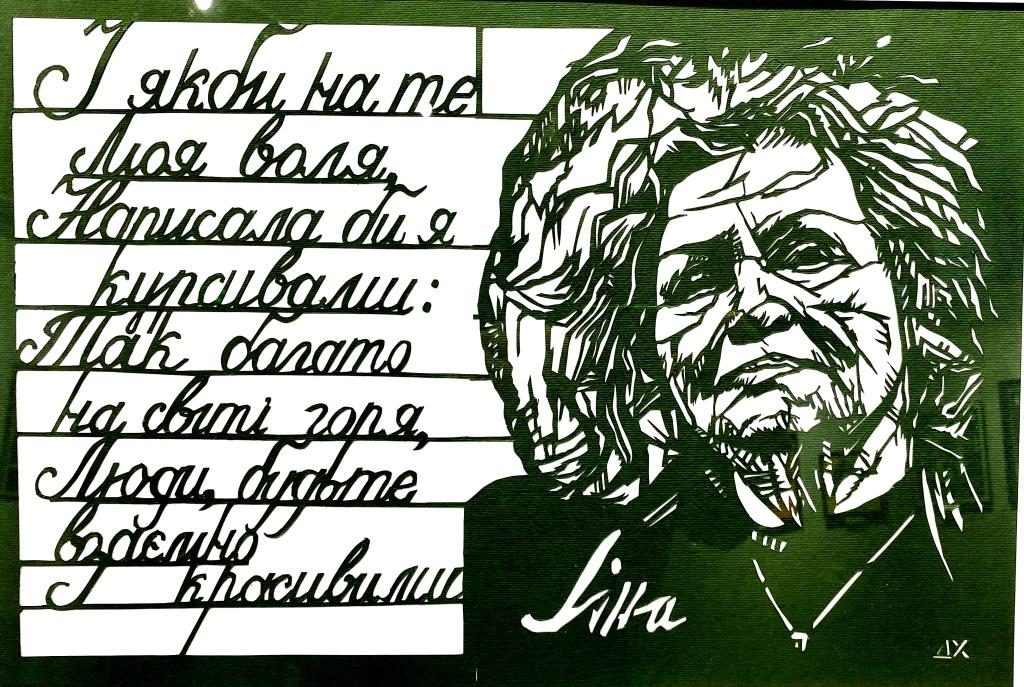 І якби на те
Моя воля,
Написала би я
курсивами:
Так багато
на світі горя,
Люди, будьте
взаємно
І красивими
Ліна
ДХ